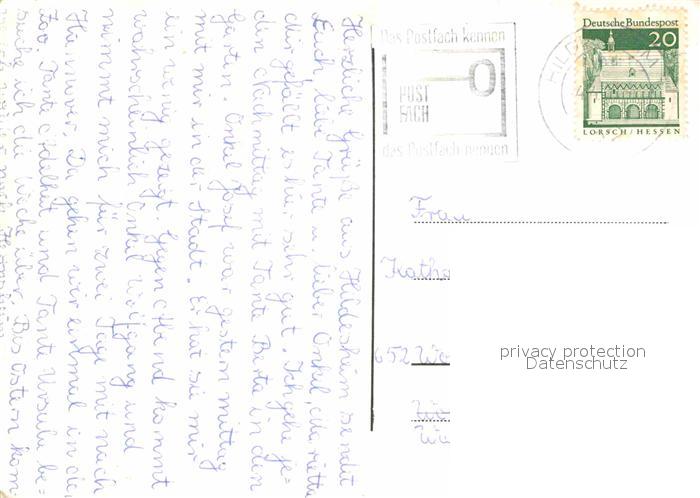 Herzliche Grüße aus Hildesheim sendet
Euch, liebe Tante u. lieber Onkel, Marietta
dir gefällt es hier sehr gut. Ich gehe je=
den Nachmittag mit Tante Berta in den
Garten. Onkel Josef war gestern mittag
mit mir in der Stadt. Er hat sie mir
ein wenig gezeigt. Gegen Abend kommt
wahrscheinlich Onkel Wolfgang und
nimmt mich für zwei Tage mit nach
Hannover. Da gehen wir einmal in den
Zoo. Tante Adelheid und Tante Ursula be=
suche ich die Woche über. Bis Ostern kom
Das Postfach kennen
POST
FACH
das Postfach nennen
Deutsche Bundespost
20
LORSCH/HESSEN
HILD
Frau
Katha
652 Wo
privacy protection
Datenschutz